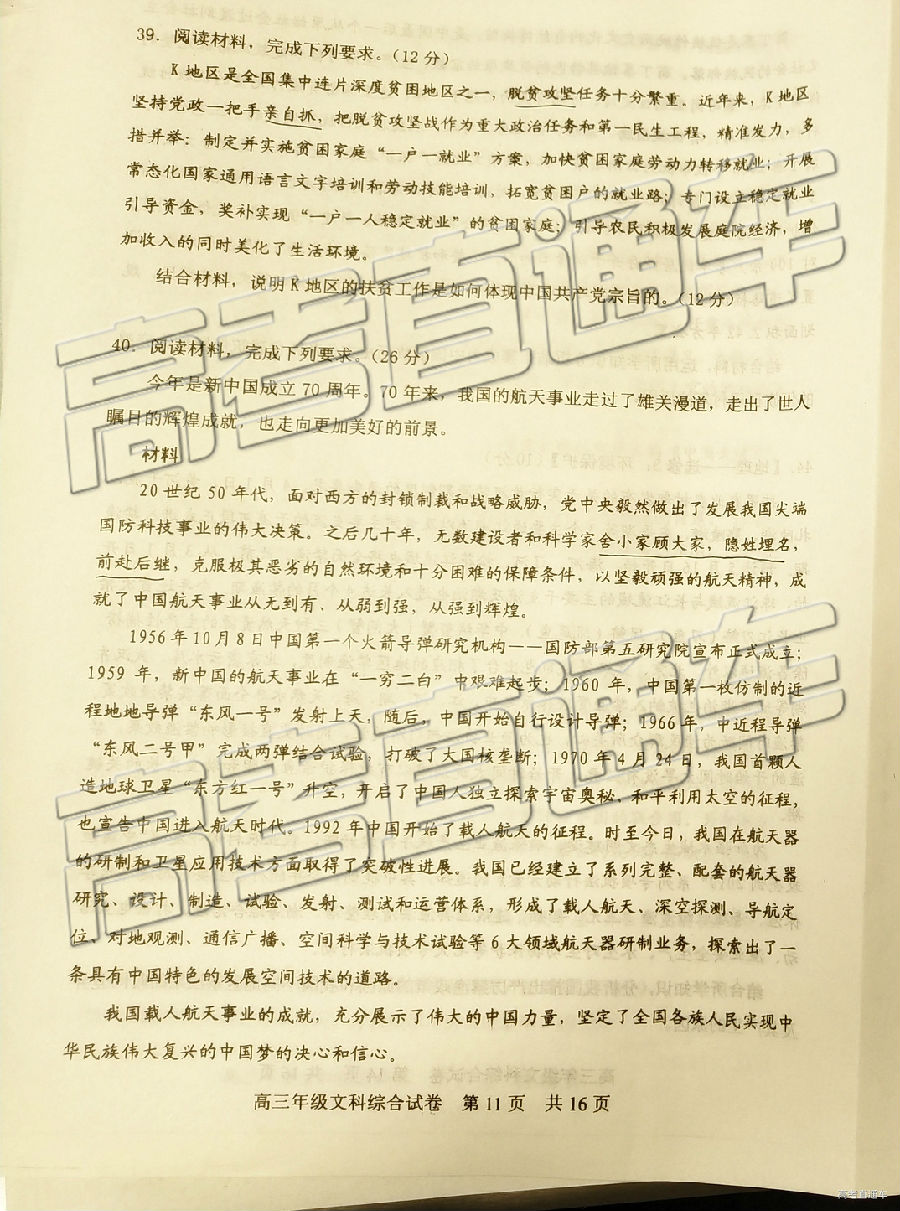 39. 阅读材料，完成下列要求。（12分）
K地区是全国集中连片深度贫困地区之一，脱贫攻坚任务十分繁重。近年来，K地区
坚持党政一把手亲自抓，把脱贫攻坚战作为重大政治任务和第一民生工程，精准发力，多
措并举：制定并实施贫困家庭“一户一就业”方案，加快贫困家庭劳动力转移就业；开展
常态化国家通用语言文字培训和劳动技能培训，拓宽贫困户的就业路；专门设立稳定就业
引导资金，奖补实现“一户一人稳定就业”的贫困家庭；引导农民积极发展庭院经济，增
加收入的同时美化了生活环境。
结合材料，说明K地区的扶贫工作是如何体现中国共产党宗旨的。（12分）
40. 阅读材料，完成下列要求。（26分）
今年是新中国成立70周年。70年来，我国的航天事业走过了雄关漫道，走出了世人
瞩目的辉煌成就，也走向更加美好的前景。
材料
20世纪50年代，面对西方的封锁制裁和战略威胁，党中央毅然做出了发展我国尖端
国防科技事业的伟大决策。之后几十年，无数建设者和科学家舍小家顾大家，隐姓埋名，
前赴后继，克服极其恶劣的自然环境和十分困难的保障条件，以坚毅顽强的航天精神，成
就了中国航天事业从无到有、从弱到强、从强到辉煌。
1956年10月8日中国第一个火箭导弹研究机构——国防部第五研究院宣布正式成立；
1959年，新中国的航天事业在“一穷二白”中艰难起步；1960年，中国第一枚仿制的近
程地地导弹“东风一号”发射上天，随后，中国开始自行设计导弹；1966年，中近程导弹
“东风二号甲”完成两弹结合试验，打破了大国核垄断；1970年4月24日，我国首颗人
造地球卫星“东方红一号”升空，开启了中国人独立探索宇宙奥秘、和平利用太空的征程，
也宣告中国进入航天时代。1992年中国开始了载人航天的征程。时至今日，我国在航天器
的研制和卫星应用技术方面取得了突破性进展。我国已经建立了系列完整、配套的航天器
研究、设计、制造、试验、发射、测试和运营体系，形成了载人航天、深空探测、导航定
位、对地观测、通信广播、空间科学与技术试验等6大领域航天器研制业务，探索出了一
条具有中国特色的发展空间技术的道路。
我国载人航天事业的成就，充分展示了伟大的中国力量，坚定了全国各族人民实现中
华民族伟大复兴的中国梦的决心和信心。
高三年级文科综合试卷 第11页 共16页
高考直通车
高考直通车
高考直通车